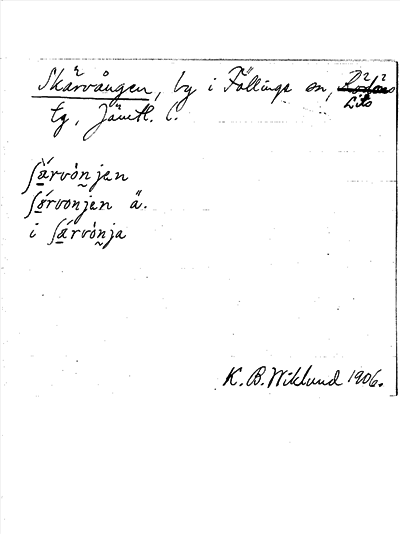 Skärvången, by i Föllinge sn, Lits
tg, Jämtl. l.
ʃárvòn̰jen
ʃórvonjen ä.
i ʃárvòn̰ja
K. B. Wiklund 1906.